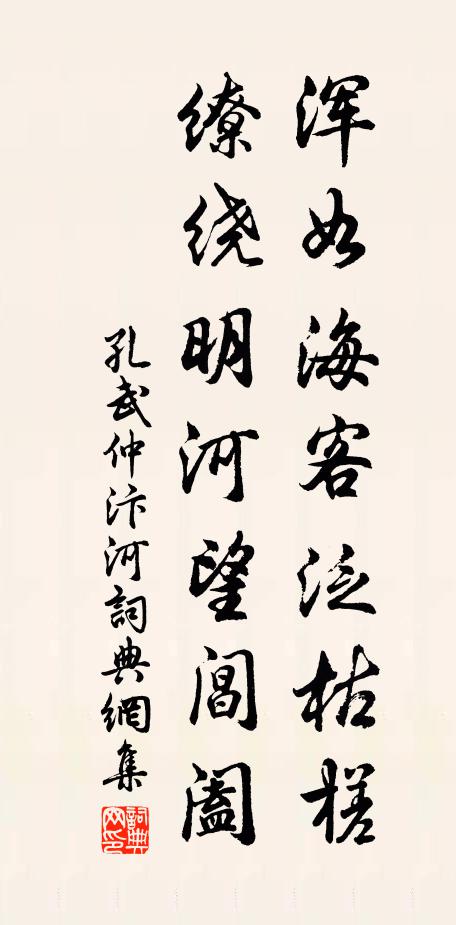 浑如海客泛枯槎
缭绕明河望阊阖
孔武仲汴河詞典網集
詞典網印